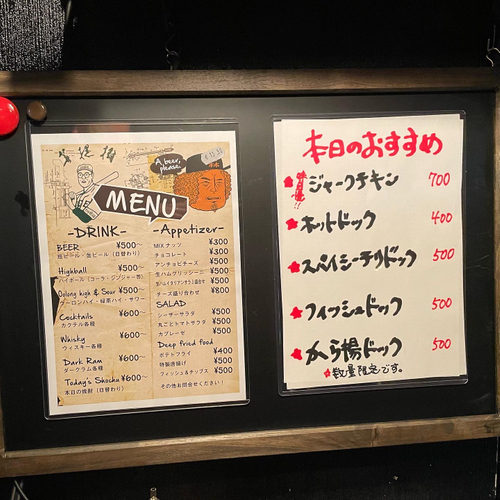 A beer, please.
MENU
-DRINK-
BEER ¥500~
瓶ビール・缶ビール(日替わり)
Highball ¥500~
ハイボール(コーラ・ジンジャー杏)
Oolong high & Sour ¥500~
ウーロンハイ・緑茶ハイ・サワー
Cocktails ¥600~
カクテル各種
Whisky ¥600~
ウィスキー各種
Dark Ram ¥600~
ダークラム各種
Today's Shochu ¥600~
本日の焼酎(日替わり)
-Appetizer-
MIX ナッツ ¥300
チョコレート ¥300
アンチョビチーズ ¥500
生ハムグリッシーニ ¥500
¥500
チーズ盛り合わせ ¥800
SALAD
シーザーサラダ ¥500
丸ごとトマトサラダ ¥500
カプレーゼ ¥500
Deep fried food
ポテトフライ ¥400
特製唐揚げ ¥500
フィッシュ&チップス ¥500
その他お問合せください!
本日のおすすめ
ジャークチキン 700
ホットドック 400
スパイシーチリドック 500
フィッシュドック 500
から揚ドック 500
数量限定です。